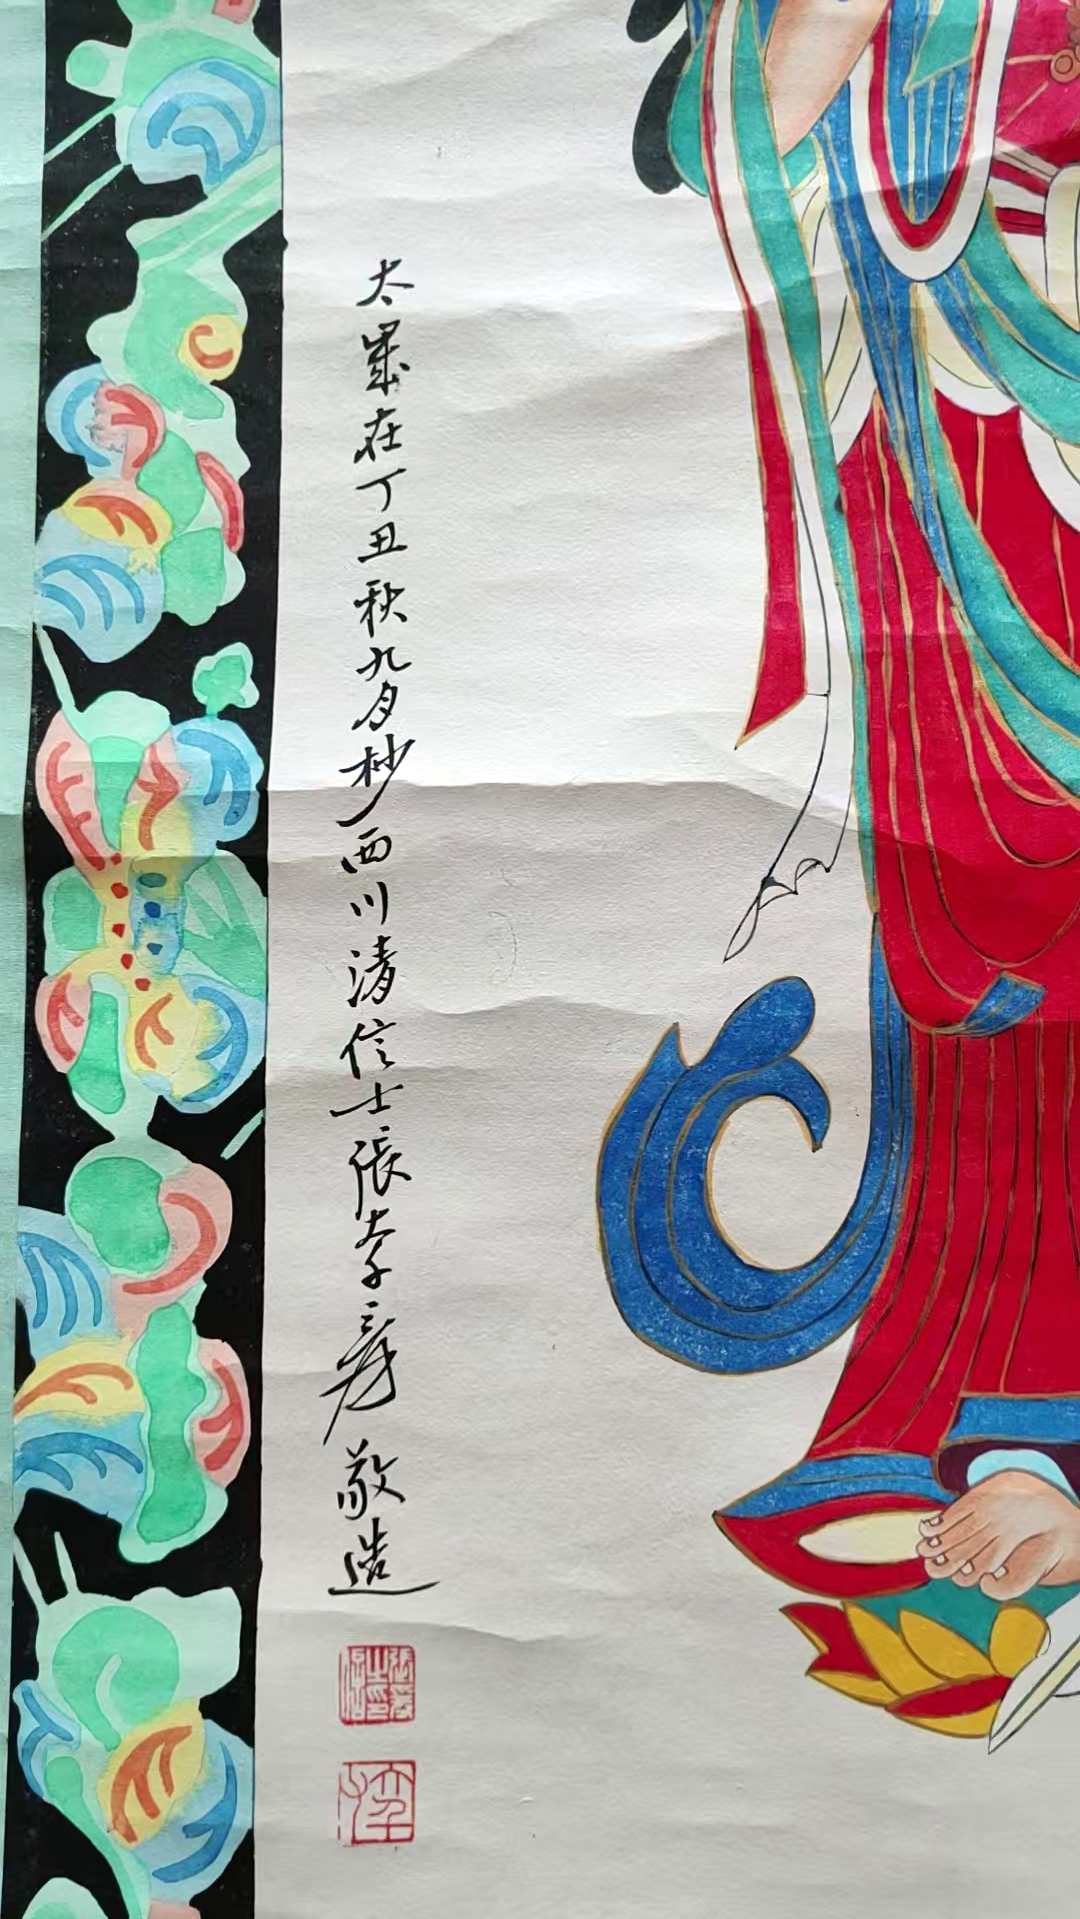 太歲在丁丑秋九月杪西川清信士張大千爰敬造